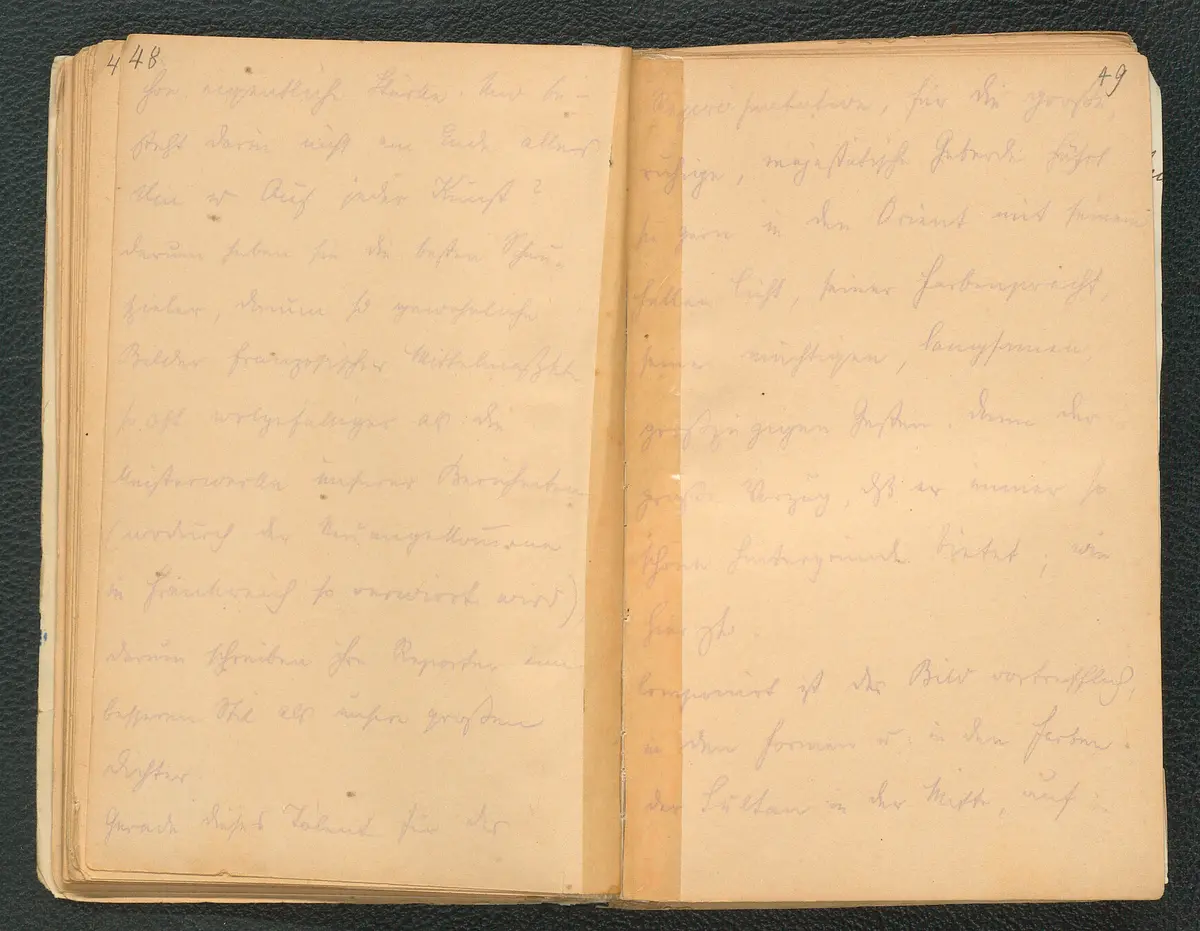 48
ihre eigentliche Stärke. Und be-
steht darin nicht am Ende alles
in jeder Kunst?
darum haben sie die besten Schau-
spieler, darum so gewöhnliche
Bilder französischer
so oft wolgefälliger als die
Meisterwerke unserer Berühmten
(wodurch der Neuangekommene
in Frankreich so verwirrt wird)
darum schreiben ihre Reporter einen
besseren Stil als unsere großen
Dichter
Gerade dieses Talent für die
49
Repräsentation, für die große,
ruhige, majestätische Geberde führt
sie gern in den Orient mit seinem
hellen Licht, seiner Farbenpracht,
seinen mächtigen, langsamen,
großzügigen Gesten. Denn der
große Vorzug, daß er immer so
schöne Hintergründe bietet; wie
hier
Componirt ist das Bild vortrefflich,
in den Formen u. in den Farben.
der Sultan in der Mitte, auf